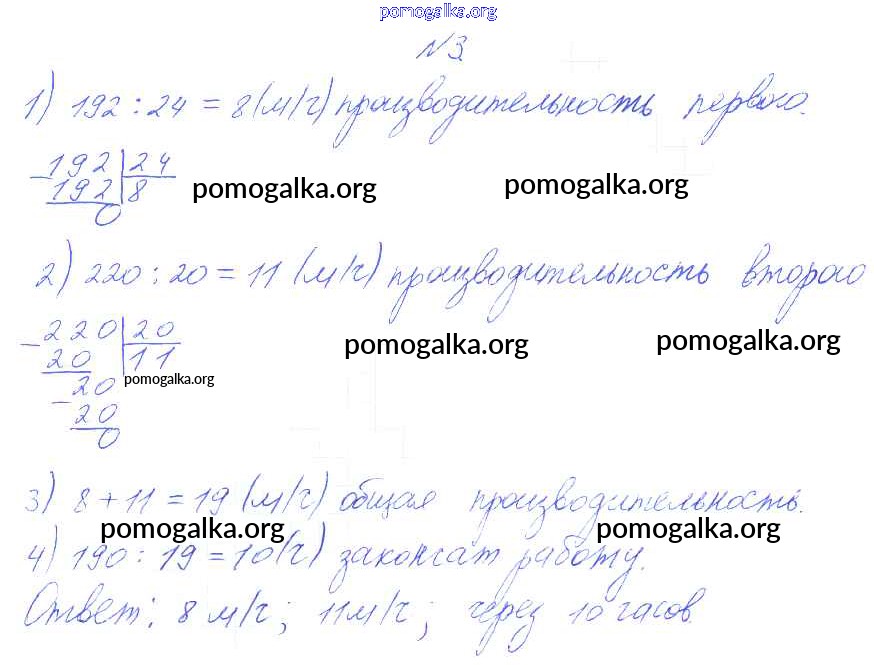 pomogalka.org
№3
1) 192 : 24 = 8 (м/ч) производительность первого.
192 | 24
- 192 | 8
0
pomogalka.org pomogalka.org
2) 220 : 20 = 11 (м/ч) производительность второго
- 220 | 20
20 | 11
pomogalka.org pomogalka.org
20 pomogalka.org
- 20
0
3) 8 + 11 = 19 (м/ч) общая производительность.
pomogalka.org pomogalka.org
4) 190 : 19 = 10 (ч) закончат работу.
Ответ: 8 м/ч; 11 м/ч; через 10 часов.